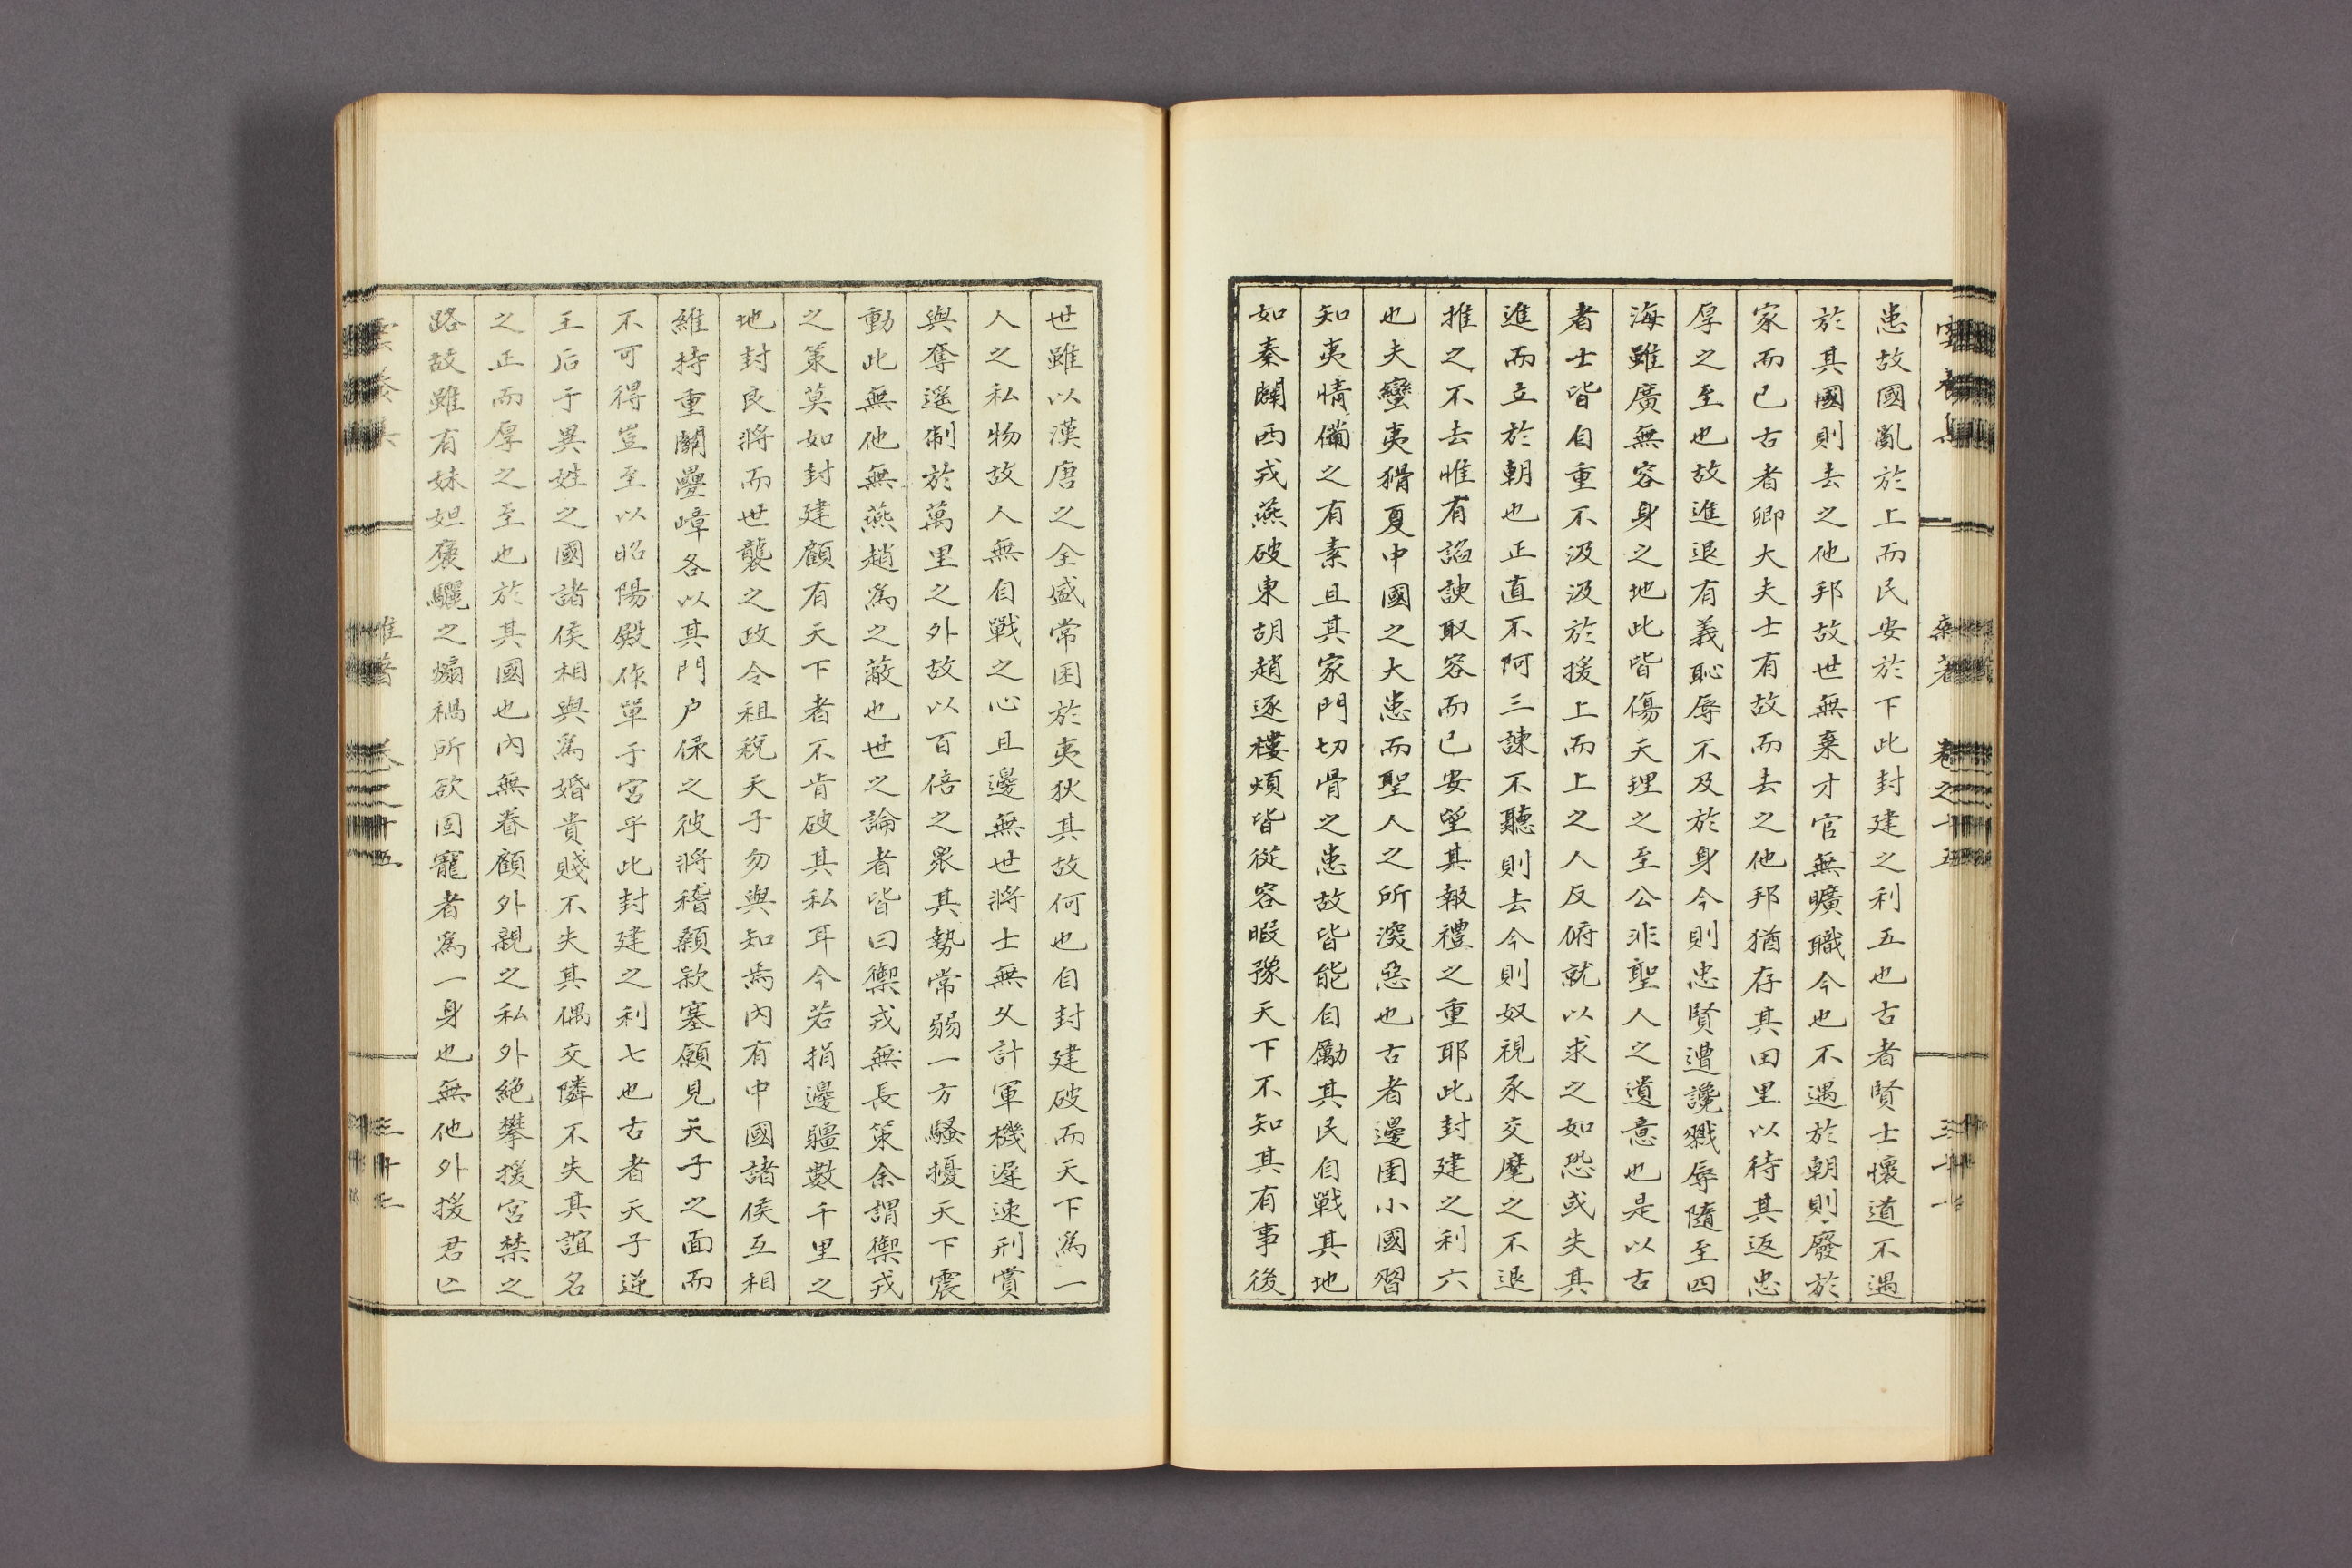 患故國亂於上而民安於下此封建之利五也古者賢士懷道不遇
於其國則去之他邦故世無棄才官無曠職今也不遇於朝則廢於
家而已古者卿大夫士有故而去之他邦猶存其田里以待其返忠
厚之至也故進退有義恥辱不及於身今則忠賢遭讒戮辱隨至四
海雖廣無容身之地此皆傷天理之至公非聖人之遺意也是以古
者士皆自重不汲汲於援上而上之人反俯就以求之如恐或失其
進而立於朝也正直不阿三諫不聽則去今則奴視豕交麾之不退
推之不去惟有諂諛取容而已安望其報禮之重耶此封建之利六
也夫蠻夷猾夏中國之大患而聖人之所深惡也古者邊圉小國習
知夷情備之有素且其家門切骨之患故皆能自勵其民自戰其地
如秦闢西戎燕破東胡趙逐樓煩皆從容暇豫天下不知其有事後
世雖以漢唐之全盛常困於夷狄其故何也自封建破而天下爲一
人之私物故人無自戰之心且邊無世將士無久計軍機遲速刑賞
與奪遥制於萬里之外故以百倍之衆其勢常弱一方騷擾天下震
動此無他無燕趙爲之蔽也世之論者皆曰禦戎無長策余謂禦戎
之策莫如封建顧有天下者不肯破其私耳今若捐邊疆數千里之
地封良將而世襲之政令租稅天子勿與知焉內有中國諸侯互相
維持重關疊嶂各以其門户保之彼將稽顙款塞願見天子之面而
不可得豈至以昭陽殿作單于宮乎此封建之利七也古者天子逆
王后于異姓之國諸侯相與爲婚貴賤不失其偶交隣不失其誼名
之正而厚之至也於其國也內無眷顧外親之私外絕攀援宮禁之
路故雖有妹妲褒驪之煽禍所欲固寵者爲一身也無他外援君亡